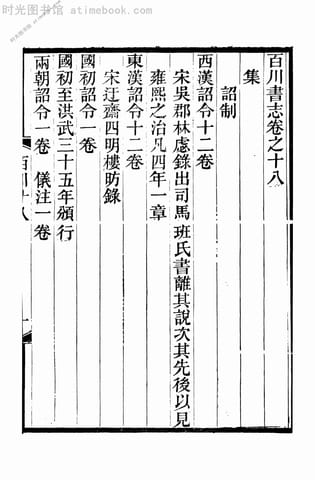 时光图书馆 - atimebook.com
百川書志卷之十八
集
詔制
西漢詔令十二卷
宋吳郡林慮錄出司馬班氏書離其說次其先後以見
雍熙之治凡四年一章
東漢詔令十二卷
宋迂齋四明樓昉錄
國初詔令一卷
國初至洪武三十五年頒行
兩朝詔令一卷 儀注一卷
百川十八
一